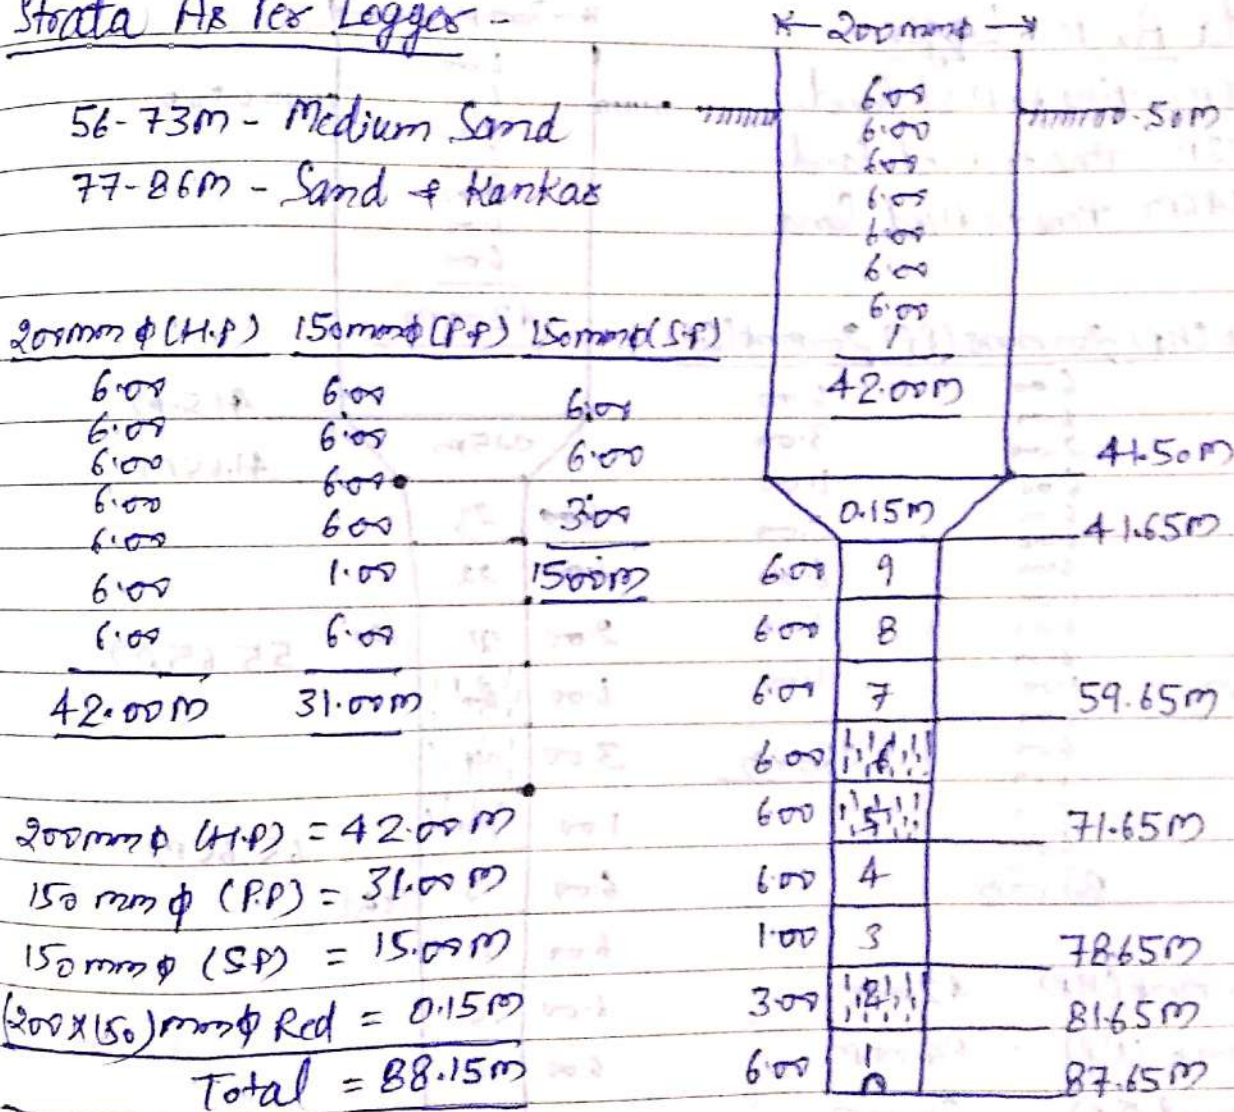 Strata As Per Logger -
56-73m - Medium Sand
77-86m - Sand & Kankar
200mm φ (H.P) 150mmφ (P.P) 150mmφ (S.P)
6.00 6.00 6.00
6.00 6.00 6.00
6.00 6.00 3.00
6.00 6.00 15.00m
6.00 1.00
6.00 6.00
6.00 31.00m
42.00m
200mm φ (H.P) = 42.00m
150 mm φ (P.P) = 31.00m
150mm φ (S.P) = 15.00m
(200x150)mmφ Red = 0.15m
Total = 88.15m
200mmφ
6.00
6.00
6.00
6.00
6.00
6.00
6.00
42.00m
.50m
41.50m
0.15m
41.65m
6.00 9
6.00 8
6.00 7 59.65m
6.00 6
6.00 5 71.65m
6.00 4
1.00 3 78.65m
3.00 2 81.65m
6.00 1 87.65m